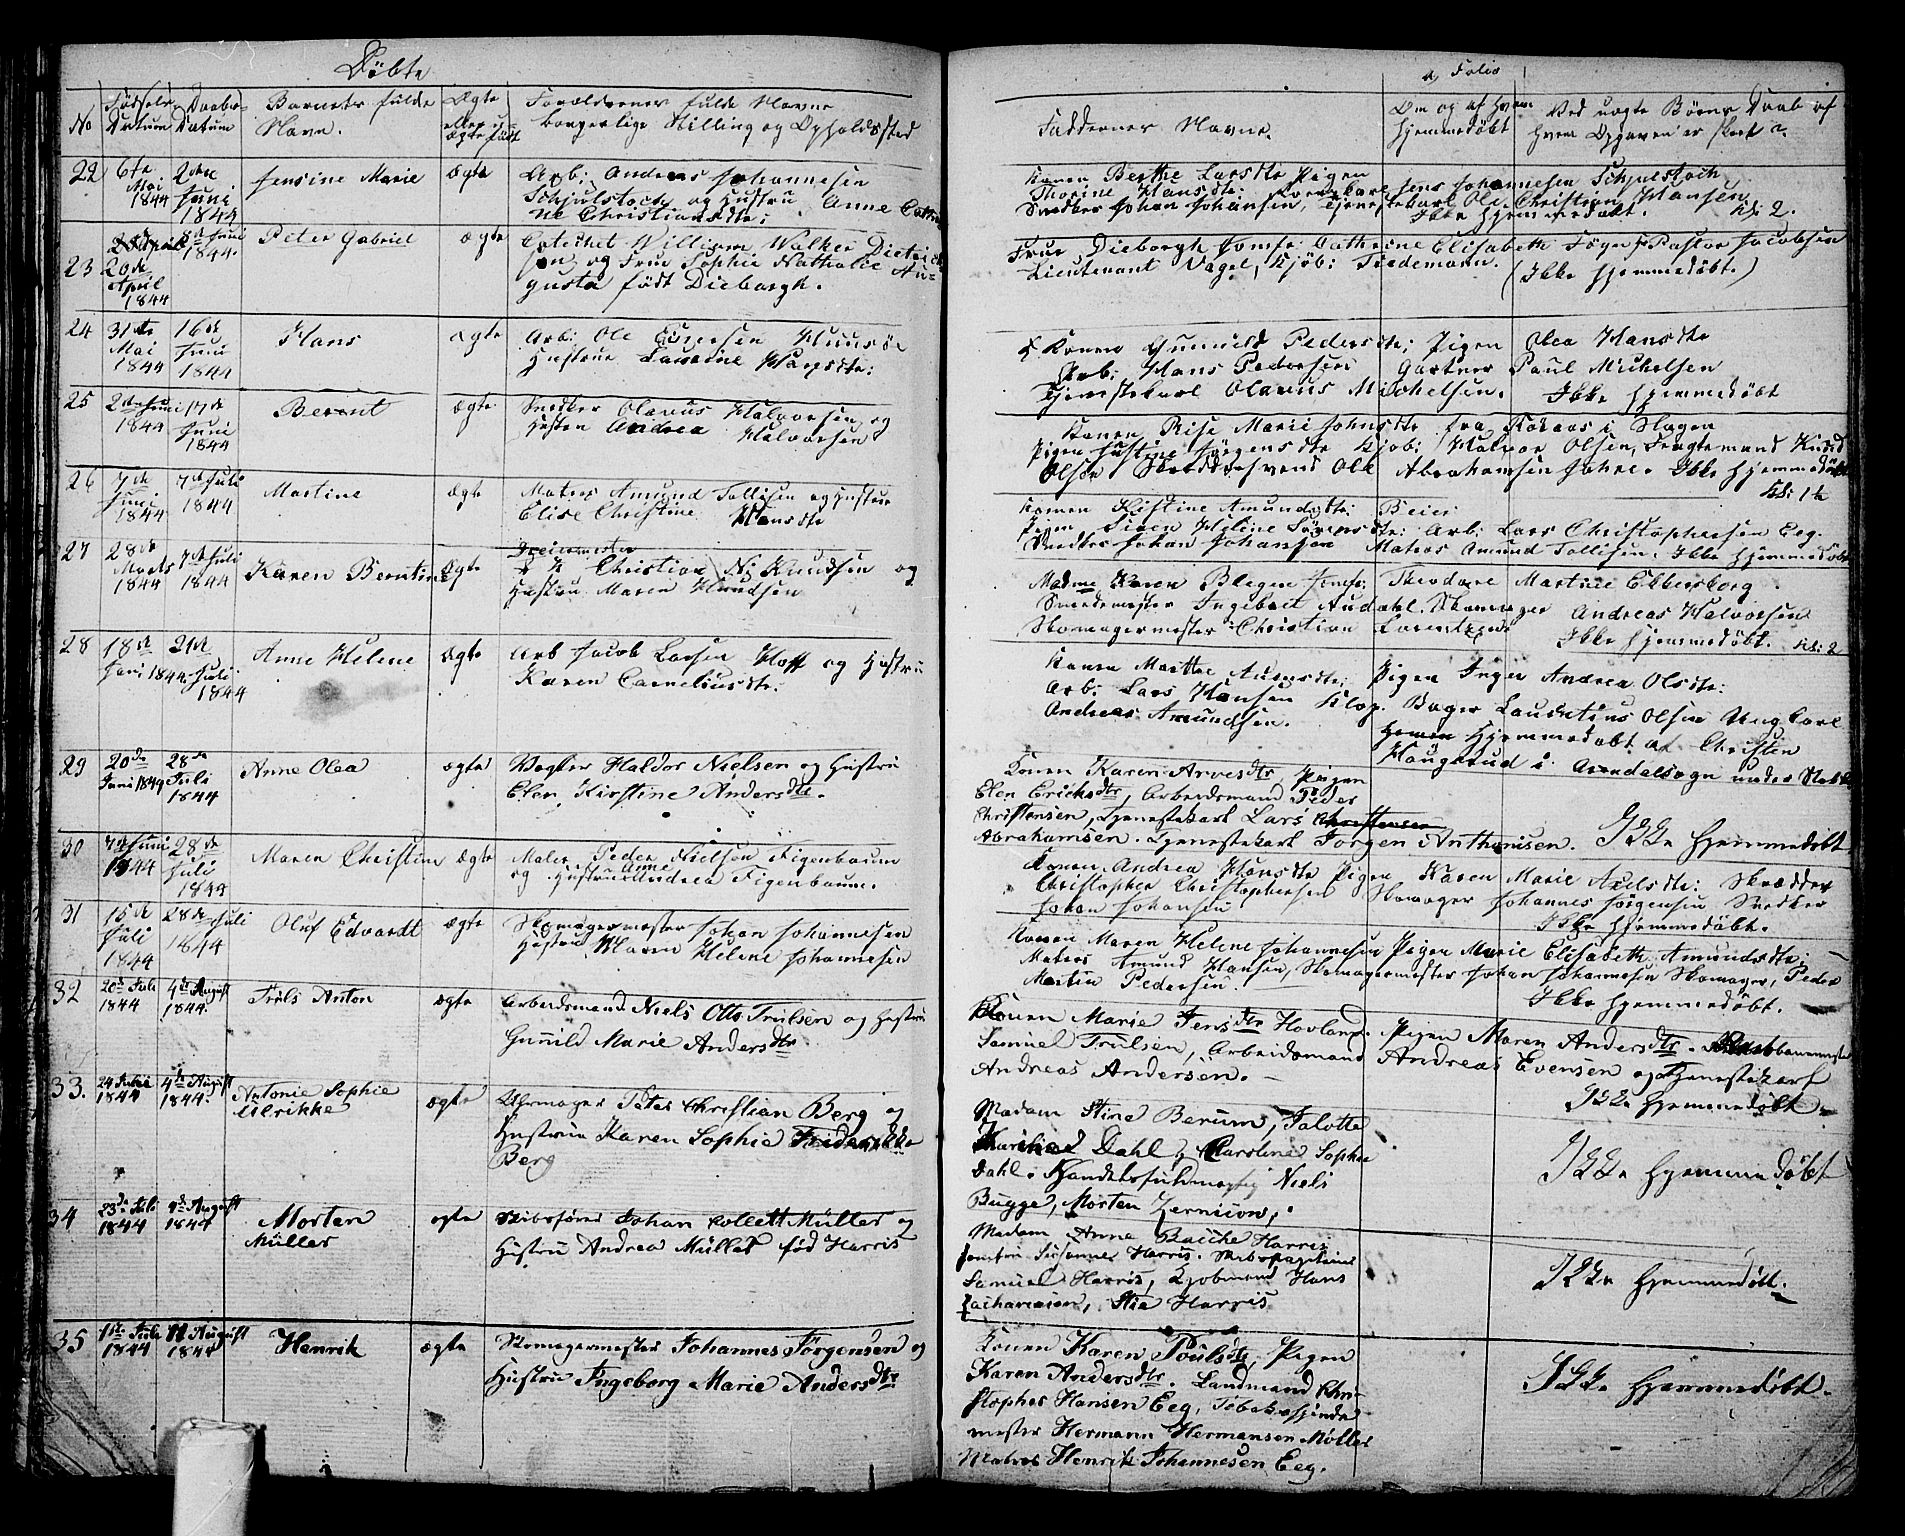 Döbte
No
Födsels Datum
Daabs Datum
Barnets fulde Navn.
Ægte eller uægte født
Forældrenes fulde Navne
borgerlige Stilling og Opholdssted
22
6te Mai 1844
2den Juni 1844
Jensine Marie
ægte
Arb: Anders Johannesen
Schjulstoch og Hustru Anne
Christiansdtr:
23
20de April 1844
8de Juni 1844.
Peter Gabriel
ægte
Catechet William Walker Dietrich
son og Frue Sophie Nathalie Au=
gusta født Dieborgh.
24
31te Mai 1844
16de Juni 1844
Hans
ægte
Arb: Ole
Hustrue Laurine Hansdtr:
25
2den Juni 1844
17de Juni 1844
Berent
ægte
Snedker Olavus Halvorsen og
Hustru Andrea Halvorsen
26
7de Juni 1844
7de Juli 1844
Martine
ægte
Matros Amund Tollisen og Hustrue
Elise Christine Hansdtr
27
28de Marts 1844
7de Juli 1844
Karen Berntine
Ægte
Christian N: Knudsen og
Hustru Maren Knudsen
28
18de Juni 1844
21de Juli 1844
Anne Helene
Ægte
Arb Jacob Larsen Hoff og Hustru
Karen Corneliusdtr:
29
20de Juni 1844
28de Juli 1844
Anne Olea
ægte
Vægter Haldor Nielsen og Hustru
Elen Kirstine Andersdtr.
30
7de Juni 1844
28de Juli 1844
Maren Christine
ægte
Maler Peder Nielsen Figenbaum
og Hustru Anne Andrea Figenbaum.
31
15de Juli 1844
28de Juli 1844
Oluf Edvardt
ægte
Skomagermester Johan Johannesen
Hustru Maren Helene Johannesen
32
20de Juli 1844
4de August 1844.
Truls Anton
ægte
Arbeidsmand Niels Otto Trulsen og Hustru
Gunild Marie Andersdtr
33.
24 Julii 1844
4de August 1844.
Antonie Sophie
Ulrikke
ægte
Uhrmager Peter Christian Berg og
Hustru Karen Sophie Friderikke
Berg
34
23de Juli 1844
4de August 1844
Morten
Müller
ægte
Skibsfører Johan Collett Müller og
Hustru Andrea Müller fød Harris
35
1ste Juli 1844
11 August 1844
Henrik
ægte
Skomagermester Johannes Jörgensen og
Hustru Ingeborg Marie Andersdtr
a Folio
Faddernes Navne.
Om og af hvem
hjemmedøbt
Ved uægte Børns Daab af
hvem Opgaven er skeet
Konen Berthe Larsdtr Pigen
Thorine Hansdtr: Jens Johannesen Schjulstoch
Snedker Johan Johansen, Tjenestekarl Ole Christian Hansen
Ikke Hjemmedøbt. Kl: 2.
Frue Dieborgh Jomfr: Cathrine Elisabeth Fogn Pastor Jacobsen
Lieutenant Vogel, Kjöb: Tiedemann. (Ikke hjemmedøbt.)
Konen Gunnild Pedersdtr; Pigen Olea Hansdtr
Arb: Hans Pedersen Gartner Paul Michelsen
Tjenestekarl Olavus Michelsen. Ikke hjemmedøbt
Konen Rise Marie Johnsdtr fra i Slagen
Pigen Justine Jörgensdtr Kjöb: Halvor Olsen, Fragtemand Knud
Olsen Ole Abrahamsen Jahre. Ikke Hjemmedøbt
Kl: 1½
Konen Kistine Amundsdtr: Beier
Pigen Siren Helene Sörensdtr: Arb: Lars Christophersen Eeg.
Snedker Johan Johansen Matros Amund Tollisen. Ikke Hjemmedøbt
Madme Karen Blegen Jomfr: Theodore Martine Ebbersborg
Smedemester Ingebret Audahl. Skomager Andreas Halvorsen
Skomagermester Christian Lorentzen
Ikke hjemmedøbt. Kl: 2
Konen Marthe Pigen Inger Andrea Olsdtr:
Arb: Lars Hansen Klop. Bager Laurentius Olsen Ungkarl
Andreas Amundsen. Hjemmedøbt af Christen
Haugerud i Arendalsogn under
Konen Karen Arvesdtr, Pigen
Elen Ericksdtr, Arbeidsmand Peder
Christensen, Tjenestekarl Lars Christensen
Abrahamsen. Tjenestekarl Jorgen Anthonisen. Ikke Hjemmedøbt
Konen Andrea Hansdtr Pigen Karen Marie Axelsdtr: Skrædder
Christopher Christophersen Skomager Johannes Jörgensen Snedker
Johan Johansen Ikke hjemmedøbt.
Konen Maren Helene Johannesen Pigen Marie Elisabeth Amundsdtr:
Matros Amund Hansen, Skomagermester Johan Johannesen Skomager, Peder
Martin Pedersen. Ikke hjemmedøbt.
Konen Marie Jensdtr Hovland. Pigen Maren Andersdtr.
Samuel Trulsen, Arbeidsmand Andreas Evensen og Tjenestekarl
Andreas Andersen. Ikke hjemmedøbt.
Madam Stine Berum, Jalotte
Dahl og Caroline Sophie
Dahl. Handelsfuldmægtig Niels
Bugge, Morten Zernicow.
Ikke hjemmedøbt
Madam Anne Bacche Harris
Jomfru Susanne Harris. Skibscapitaine
Samuel Harris, Kjøbmand Hans
Zachariasen, Stia Harris
Ikke hjemmedøbt.
Konen Karen Poulsdtr, Pigen
Karen Andersdtr. Landmand Chri-
stopher Hansen Eeg, Tobakspinde
mester Hermann Hermansen Møller
Matros Henrik Johannesen Eeg.
Ikke hjemmedøbt.